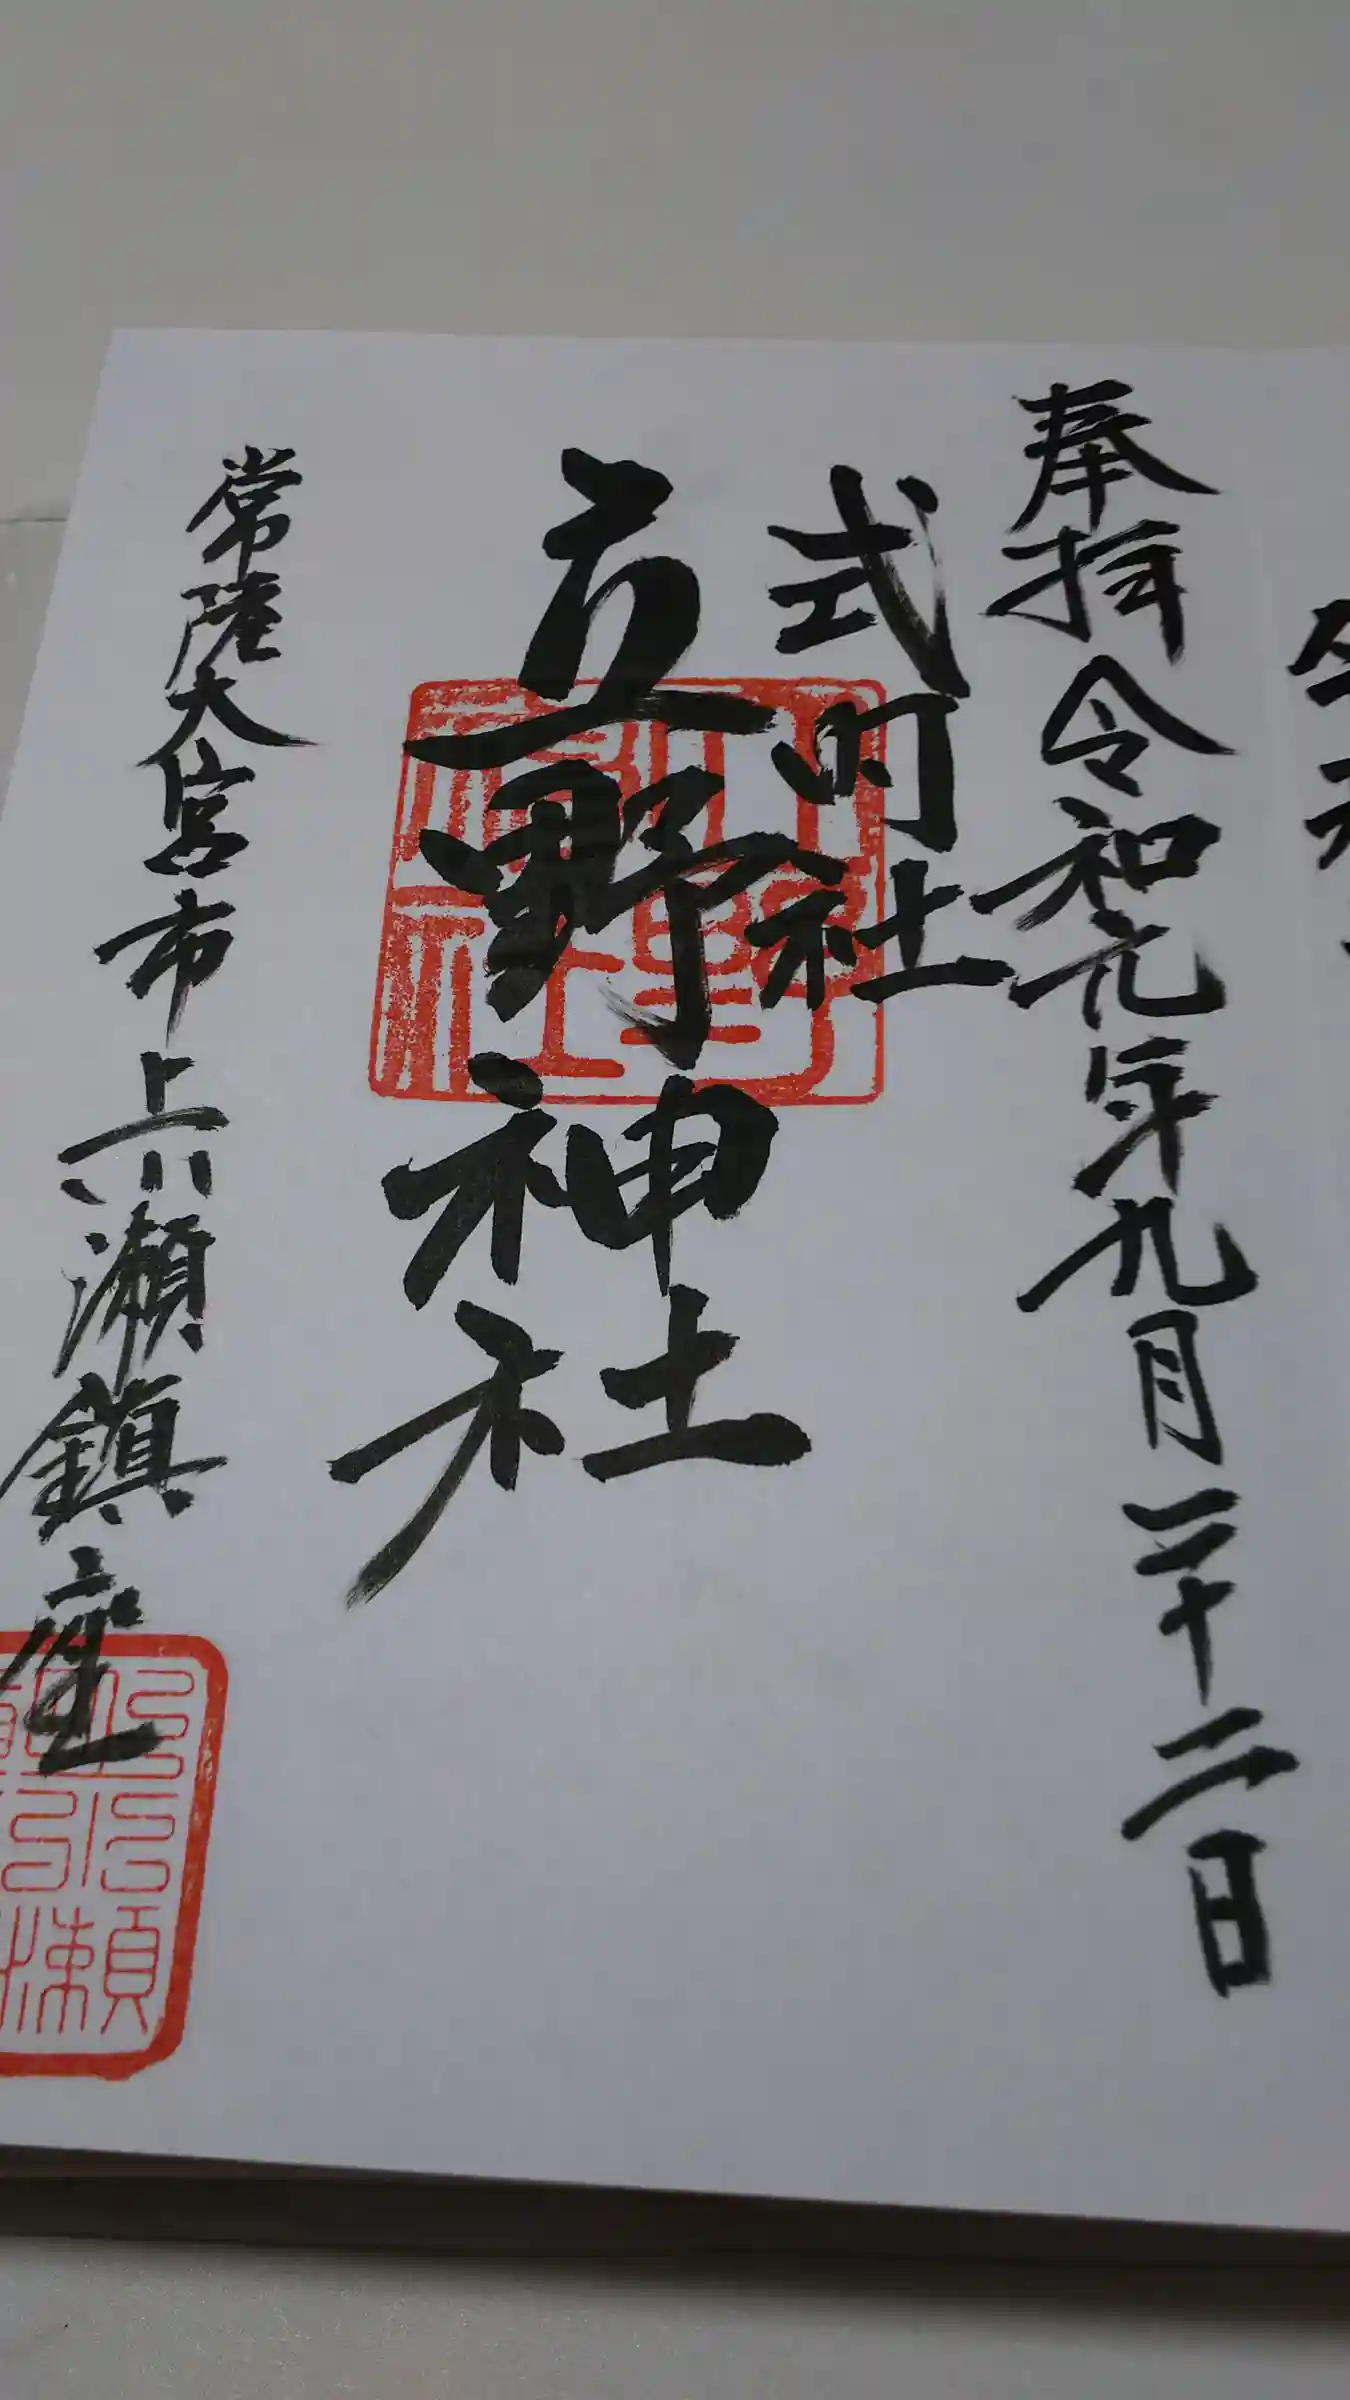 奉拝 令和元年九月二十二日
式内社
立野神社
常陸大宮市上小瀬鎮座